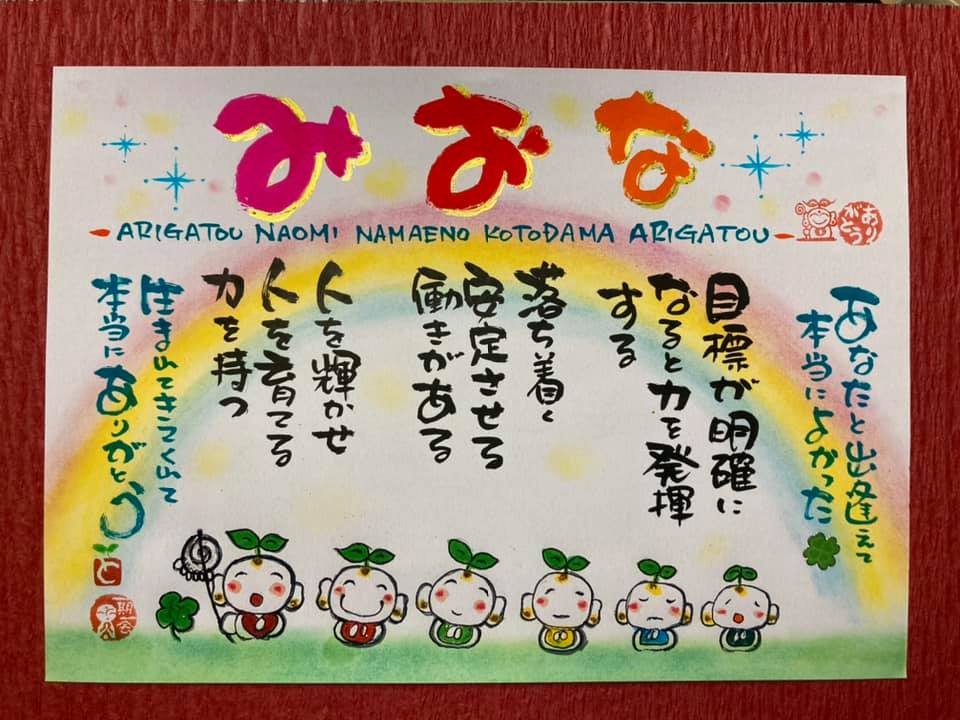 なおみ
ARIGATOU NAOMI NAMAENO KOTODAMA ARIGATOU
ありがとう
あなたと出逢えて
本当によかった
目標が明確に
なると力を発揮
する
落ち着く
安定させる
働きがある
人を輝かせ
人を育てる
力を持つ
生まれてきてくれて
本当にありがとう
と